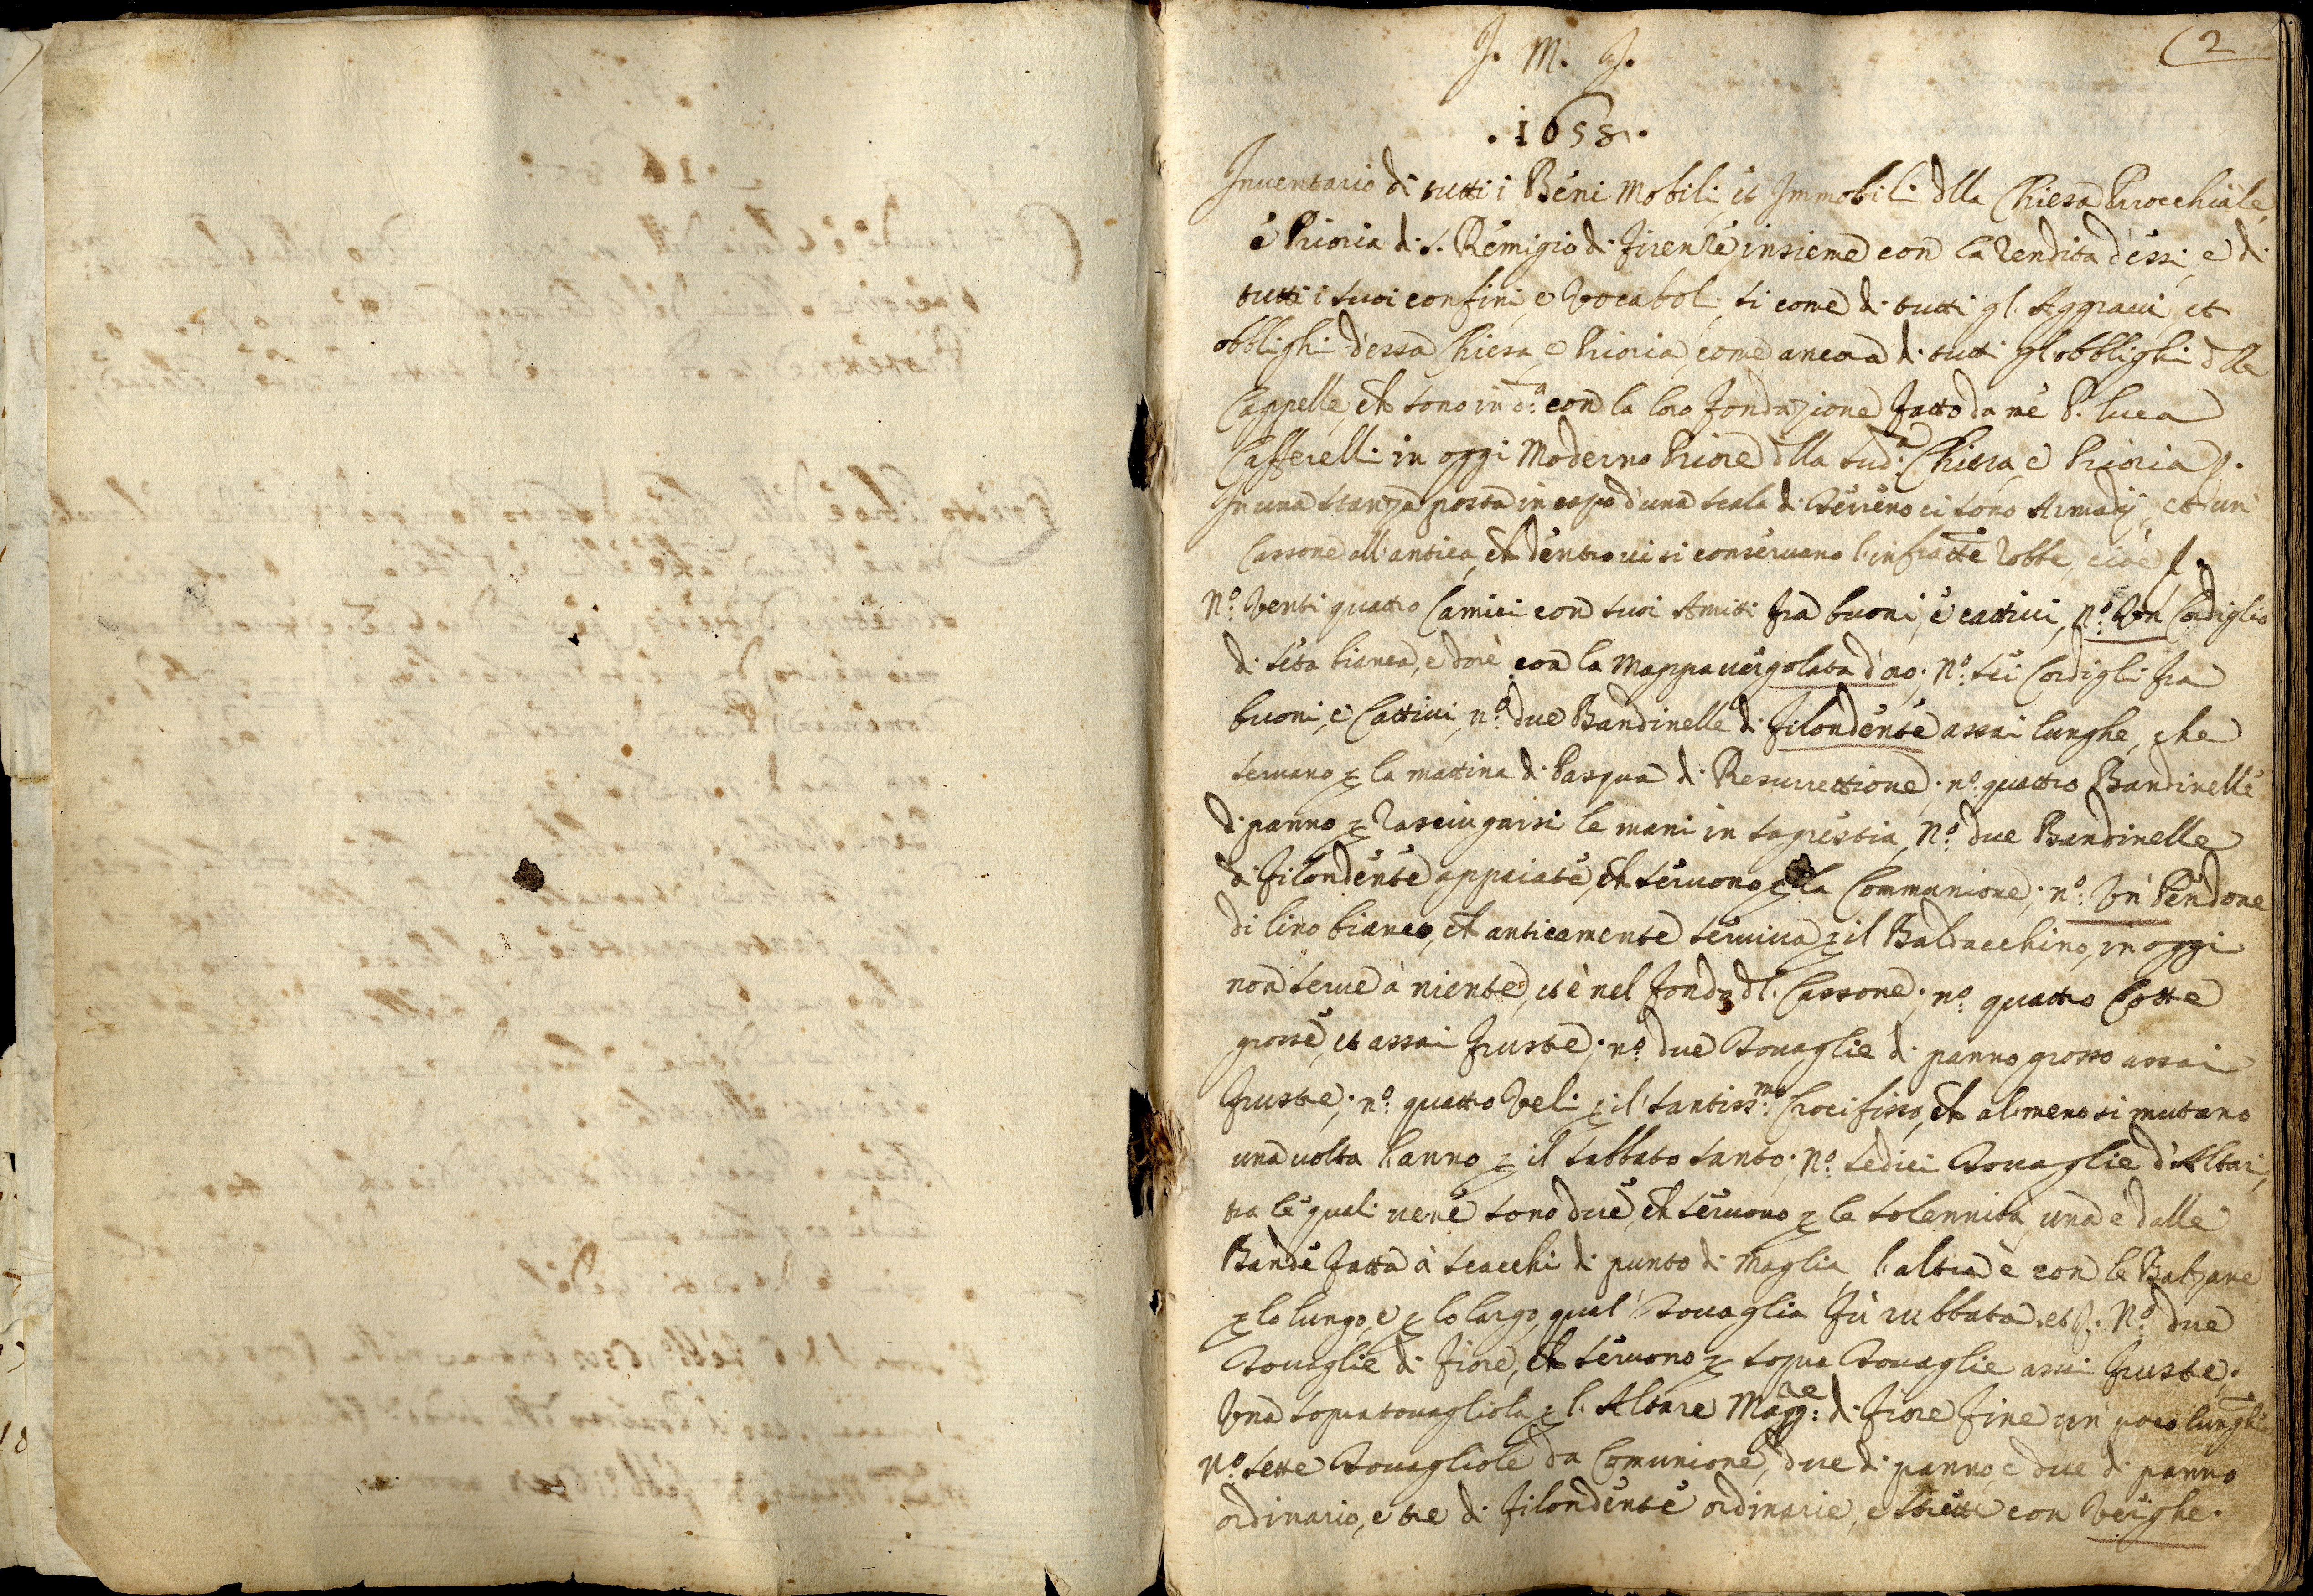 2
J. M. J.
.1658.
Inventario di tutti i Beni Mobili et Immobili dlla Chiesa Parocchiale,
è Prioria di S. Remigio di Firenze insieme con la rendita d'essi, e di
tutti i suoi confini, e Vocaboli, si come di tutti gl'Aggravi, et
obblighi d'essa Chiesa, e Prioria, come ancora di tutti gl'obblighi dlle
Cappelle, ch sono in d.ª con la loro fondazione fatto da me P. Luca
Cafferelli in oggi Moderno Priore dlla sud.ª Chiesa, e Prioria
In una stanza posta in capo d'una scala di Terreno ci sono Armadij, et un
Cassone all'antica, ch dentro vi si conservano l'infratte robbe, cioè
N.º Venti quattro Camici con suoi Amitti fra buoni, e cattivi, N.º Un Cordiglio
di seta bianca, e dorè con la Mappa vergolata d'oro; N.º sei Cordigli fra
buoni, e Cattivi, n.º due Bandinelle di filondente assai lunghe, che
servano p la mattina di Pasqua di Resurrettione; n.º quattro Bandinelle
di panno p rasciugarsi le mani in sagrestia, N.º due Bandinelle
di filondente appaiate, ch servono p la Communione; n.º Un Pendone
di lino bianco, ch anticamente serviva p il Baldacchino, in oggi
non serve à niente, et è nel fondo dl Cassone; n.º quattro Cotte
grosse, et assai fruste; n.º due Tovaglie di panno grosso assai
fruste; n.º quattro Veli p il santiss.mo Crocifisso, ch almeno si mutano
una volta l'anno p il Sabbato Santo; N.º sedici Tovaglie d'Altari,
tra le quali vene sono due, ch servono p le solennità, una è dalle
Bande fatta à scacchi di punto di Maglia, l'altra è con le Balzane
p lo lungo, e p lo largo, qual Tovaglia fù rubbata, et N.º due
Tovaglie di fiore, ch servono p sopra Tovaglie assai fruste;
Una sopratovagliola p l'Altare Magg:re di fiore fine un poco lungh
N.º sette Tovagliole da Comunione, due di panno, e due di panno
ordinario, e tre di filondente ordinarie, e strette con Verghe.